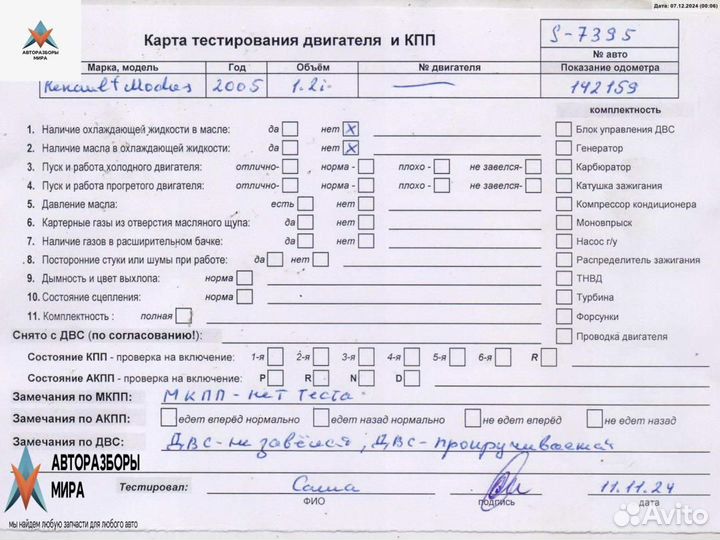 Дата: 07.12.2024 (00:06)
АВТОРАЗБОРЫ
МИРА
Карта тестирования двигателя и КПП
S-7395
№ авто
Марка, модель Год Объём № двигателя Показание одометра
Renault Modus 2005 1.2i — 142159
комплектность
1. Наличие охлаждающей жидкости в масле: да нет X Блок управления ДВС
2. Наличие масла в охлаждающей жидкости: да нет X Генератор
3. Пуск и работа холодного двигателя: отлично- норма - плохо - не завелся- Карбюратор
4. Пуск и работа прогретого двигателя: отлично- норма - плохо - не завелся- Катушка зажигания
5. Давление масла: есть нет Компрессор кондиционера
6. Картерные газы из отверстия масляного щупа: да нет Моновпрыск
7. Наличие газов в расширительном бачке: да нет Насос г/у
8. Посторонние стуки или шумы при работе: да нет Распределитель зажигания
9. Дымность и цвет выхлопа: норма ТНВД
10. Состояние сцепления: норма Турбина
11. Комплектность : полная Форсунки
Снято с ДВС (по согласованию!): Проводка двигателя
Состояние КПП - проверка на включение: 1-я 2-я 3-я 4-я 5-я 6-я R
Состояние АКПП - проверка на включение: P R N D
Замечания по МКПП: МКПП - нет теста
Замечания по АКПП: едет вперёд нормально едет назад нормально не едет вперёд не едет назад
Замечания по ДВС: ДВС - не завёлся, ДВС - прокручивается
АВТОРАЗБОРЫ
МИРА
мы найдем любую запчасти для любого авто
Тестировал: Саша 11.11.24
ФИО подпись дата
Avito